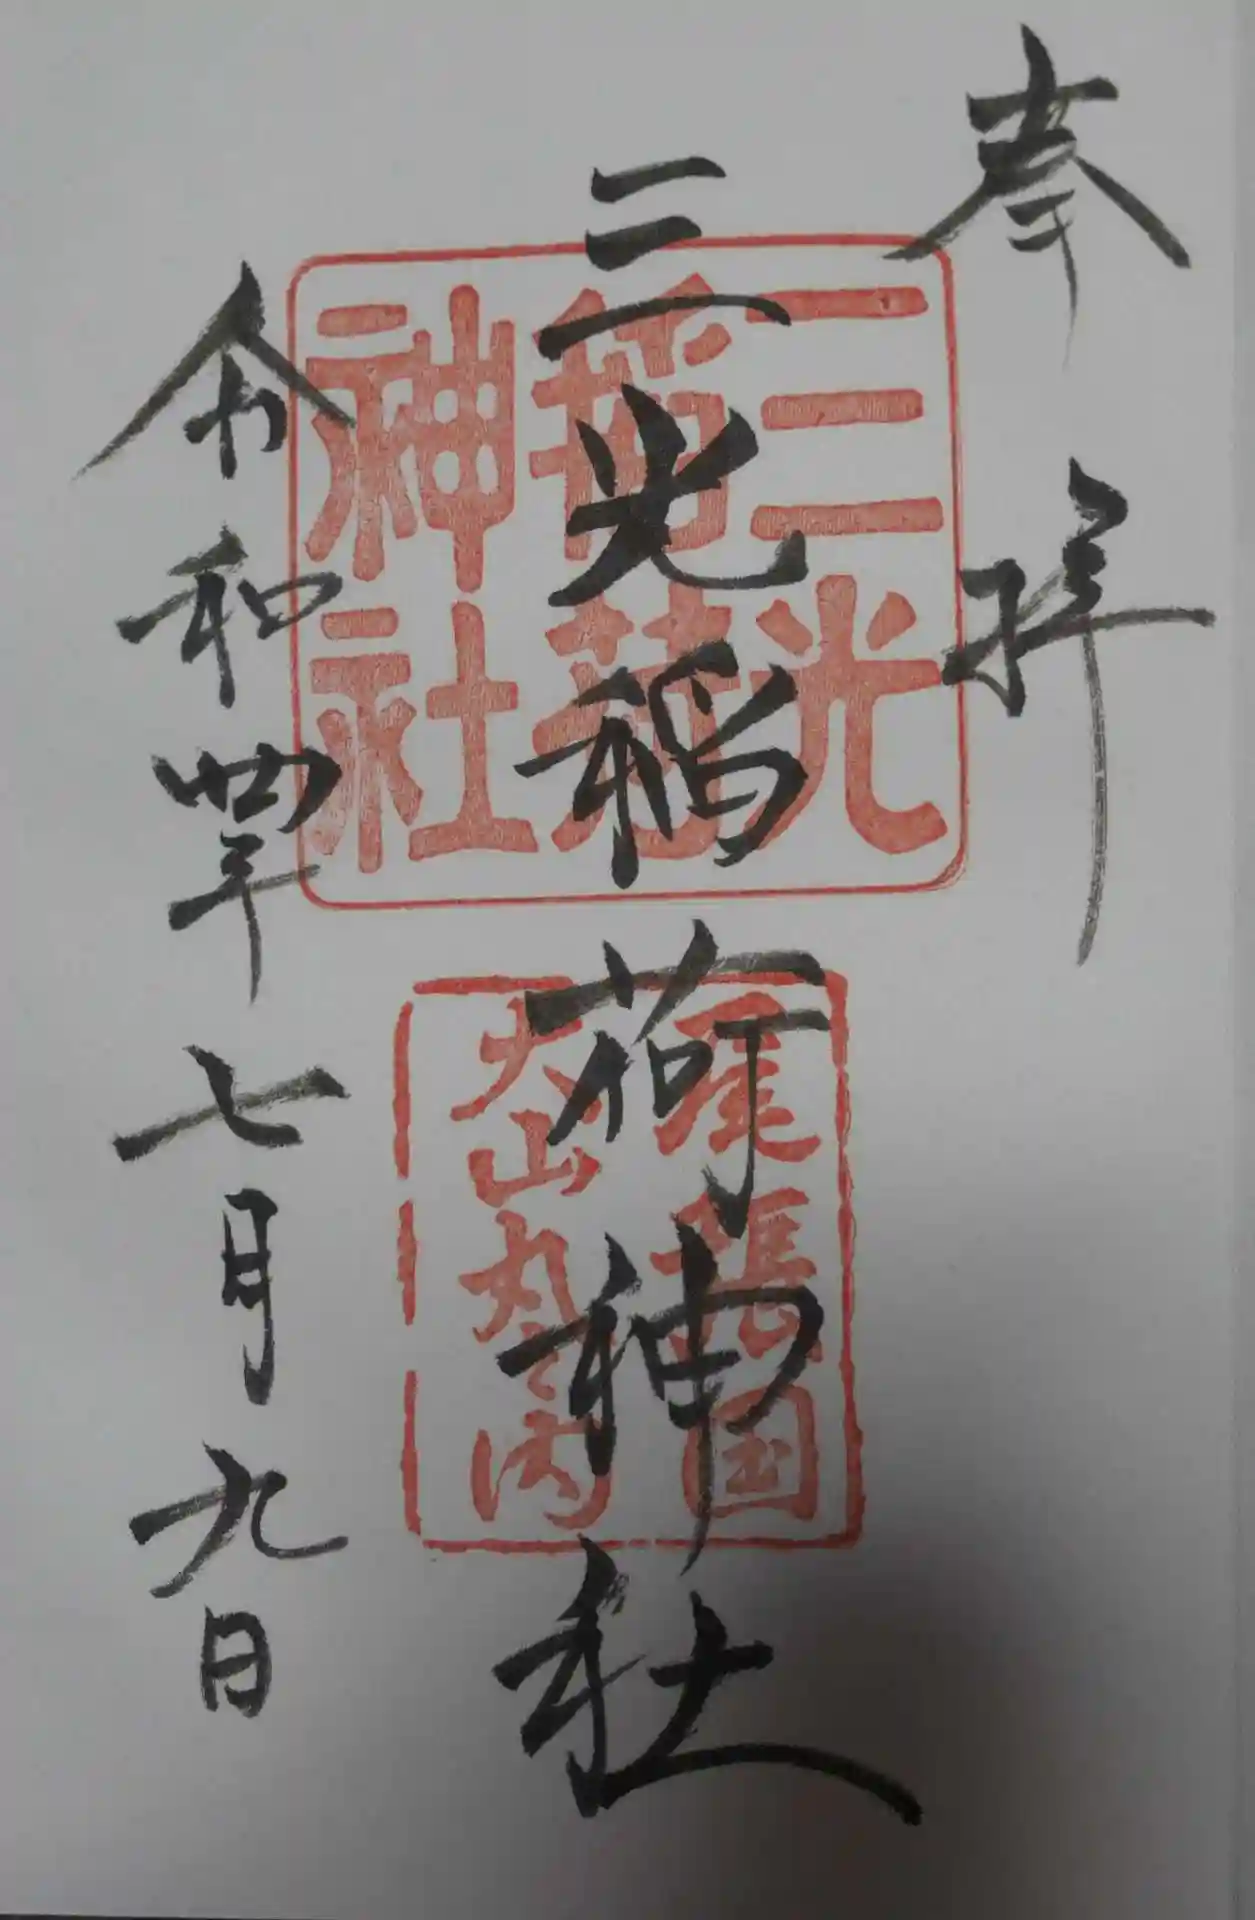 奉拝
三光稲荷神社
令和四年七月九日
三光
稲荷
神社
尾張国
犬山丸之内